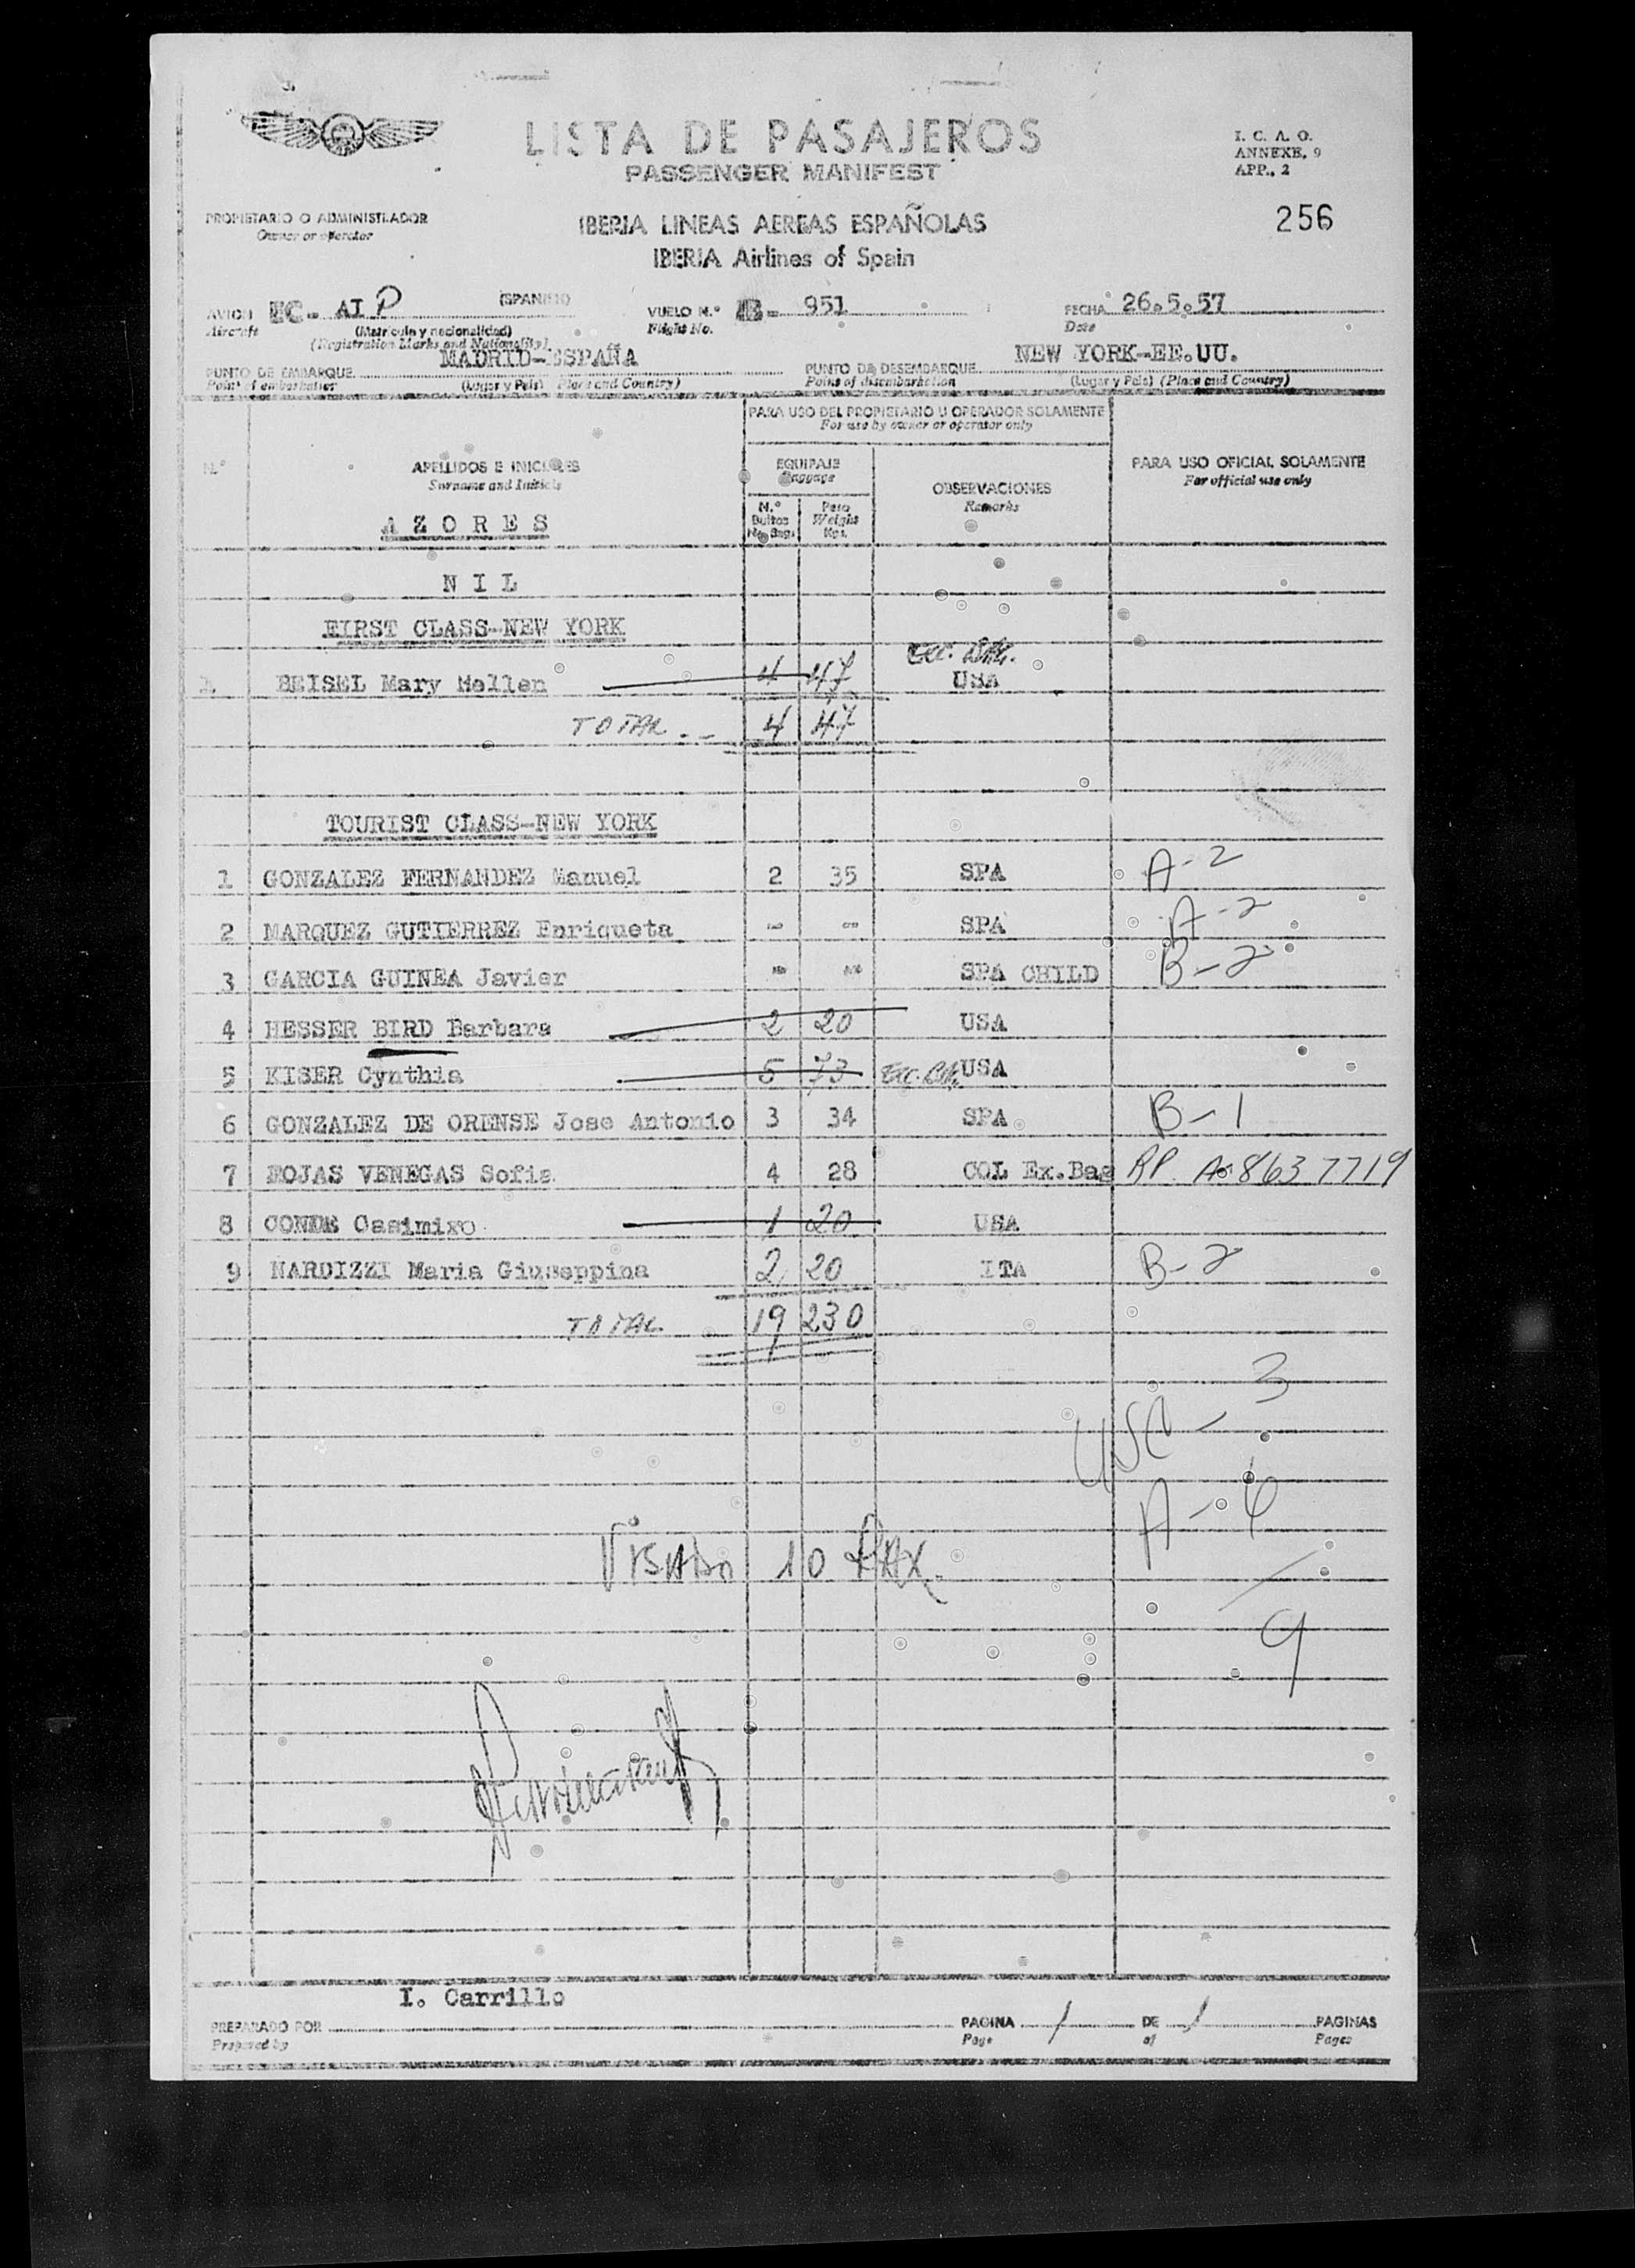 LISTA DE PASAJEROS
PASSENGER MANIFEST
I. C. A. O.
ANNEXE, 9
APP., 2
PROPIETARIO O ADMINISTRADOR
Owner or operator
IBERIA LINEAS AEREAS ESPAÑOLAS
IBERIA Airlines of Spain
256
AVION EC- AI P (SPANISH) VUELO N.° IB- 951 FECHA 26.5.57
Aircraft (Matrícula y nacionalidad) Flight No. Date
(Registration Marks and Nationality)
MADRID-ESPAÑA NEW YORK-EE.UU.
PUNTO DE EMBARQUE PUNTO DE DESEMBARQUE
Point of embarkation (Lugar y País) Place and Country) Point of disembarkation (Lugar y País) (Place and Country)
PARA USO DEL PROPIETARIO U OPERADOR SOLAMENTE
For use by owner or operator only
N.° APELLIDOS E INICIALES EQUIPAJE OBSERVACIONES PARA USO OFICIAL SOLAMENTE
Surname and Initials Baggage Remarks For official use only
N.° Bultos Peso
No. Bags. Weight Kgs.
A Z O R E S
N I L
FIRST CLASS-NEW YORK
BEISEL Mary Hellen 4 47 USA
TOTAL 4 47
TOURIST CLASS-NEW YORK
1 GONZALEZ FERNANDEZ Manuel 2 35 SPA A-2
2 MARQUEZ GUTIERREZ Enriqueta - - SPA A-2
3 GARCIA GUINEA Javier - - SPA CHILD B-2
4 HESSER BIRD Barbara 2 20 USA
5 KISER Cynthia 5 73 USA
6 GONZALEZ DE ORENSE Jose Antonio 3 34 SPA B-1
7 ROJAS VENEGAS Sofia 4 28 COL Ex.Bag RP. A-8637719
8 CONDE Casimixo 1 20 USA
9 NARDIZZI Maria Giuseppina 2 20 ITA B-2
TOTAL 19 230
USC - 3
A - 6
9
VISADO 10 PAX.
I. Carrillo
PREPARADO POR PAGINA 1 DE 1 PAGINAS
Prepared by Page of Pages